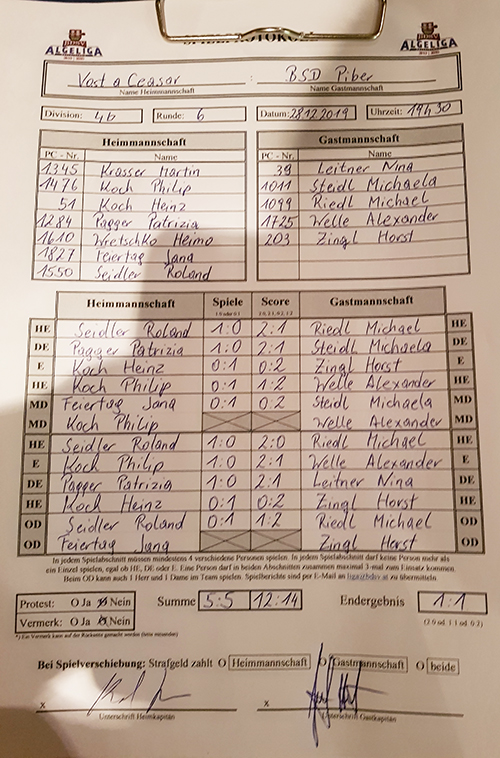 ALGELIGA ALGELIGA
Vost a Ceasar : BSD Piber
Name Heimmannschaft Name Gastmannschaft
Division: 4b Runde: 6 Datum: 28.12.2019 Uhrzeit: 19h30
Heimmannschaft Gastmannschaft
PC - Nr. Name PC - Nr. Name
1345 Krasser Martin 39 Leitner Nina
1476 Koch Philip 1011 Steidl Michaela
51 Koch Heinz 1099 Riedl Michael
1284 Pagger Patrizia 1725 Welle Alexander
1610 Wretschko Heimo 203 Zingl Horst
1827 Feiertag Jana
1550 Seidler Roland
Heimmannschaft Spiele Score Gastmannschaft
HE Seidler Roland 1:0 2:1 Riedl Michael HE
DE Pagger Patrizia 1:0 2:1 Steidl Michaela DE
E Koch Heinz 0:1 0:2 Zingl Horst E
HE Koch Philip 0:1 1:2 Welle Alexander HE
MD Feiertag Jana 0:1 0:2 Steidl Michaela MD
MD Koch Philip Welle Alexander MD
HE Seidler Roland 1:0 2:0 Riedl Michael HE
E Koch Philip 1:0 2:1 Welle Alexander E
DE Pagger Patrizia 1:0 2:1 Leitner Nina DE
HE Koch Heinz 0:1 0:2 Zingl Horst HE
OD Seidler Roland 0:1 1:2 Riedl Michael OD
OD Feiertag Jana Zingl Horst OD
In jedem Spielabschnitt müssen mindestens 4 verschiedene Personen spielen. In jedem Spielabschnitt darf keine Person mehr als
ein Einzel spielen, egal ob HE, DE oder E. Eine Person darf in beiden Abschnitten zusammen maximal 3-mal zum Einsatz kommen.
Beim OD kann auch 1 Herr und 1 Dame im Team spielen. Spielberichte sind per E-Mail an zu übermitteln.
Protest: O Ja O Nein Summe 5:5 12:14 Endergebnis 1:1
Vermerk: O Ja O Nein (2:0 od. 1:1 od. 0:2)
Bei Spielverschiebung: Strafgeld zahlt O Heimmannschaft O Gastmannschaft O beide
x x
Unterschrift Heimkapitän Unterschrift Gastkapitän